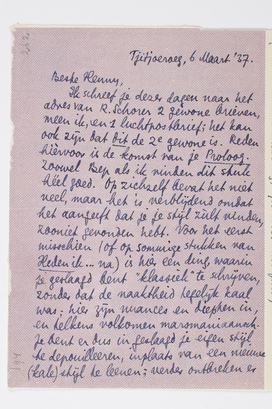 Tjitjoeroeg, 6 Maart '37.
Beste Henny,
Ik schreef je dezer dagen naar het
adres van R. Schorer 2 gewone brieven,
meen ik, en 1 luchtpostbrief; het kan
ook zijn dat dit de 2e gewone is. Reden
hiervoor is de komst van je Proloog.
Zoowel Bep als ik vinden dit stuk
héél goed. Op zichzelf bevat het niet
veel, maar het is verblijdend omdat
het aangeeft dat je je stijl zult vinden,
zooniet gevonden hebt. Voor het eerst
misschien (of op sommige stukken van
Heden ik... na) is hier een ding waarin
je geslaagd bent "klassiek" te schrijven,
zonder dat de naaktheid tegelijk kaal
was; hier zijn nuances en diepten in,
en telkens volkomen marsmaniaansch.
Je bent er dus in geslaagd je eigen stijl
te depouilleeren, inplaats van een nieuwe
(kale) stijl te leenen; verder ontbreken er